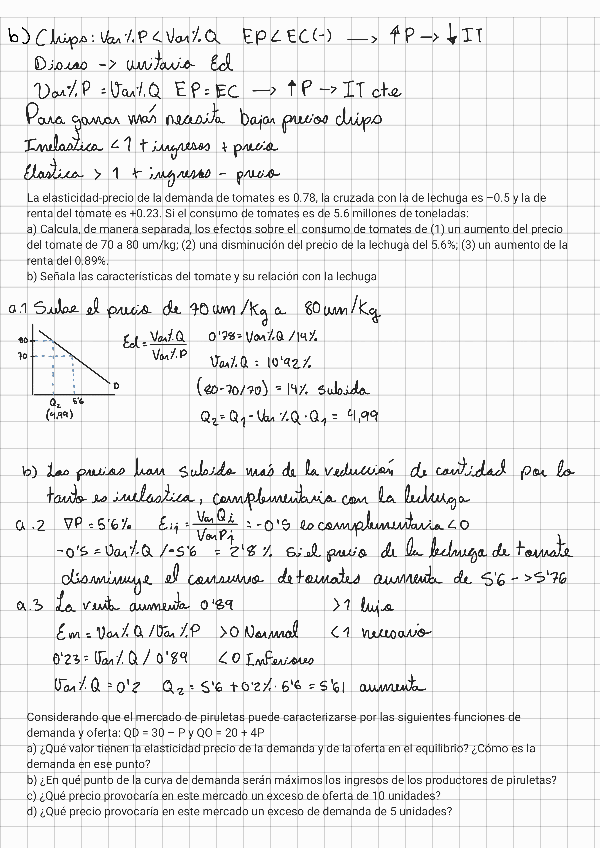 b) Chips: Var%P < Var%Q EP < EC (-) —> ↑P -> ↓IT
Discos -> unitaria Ed
Var%P = Var%Q EP = EC —> ↑P -> IT cte
Para ganar más necesita bajar precios chips
Inelastica < 1 + ingresos + precio
Elastica > 1 + ingresos - precio
La elasticidad-precio de la demanda de tomates es 0.78, la cruzada con la de lechuga es –0.5 y la de
renta del tomate es +0.23. Si el consumo de tomates es de 5.6 millones de toneladas:
a) Calcula, de manera separada, los efectos sobre el consumo de tomates de (1) un aumento del precio
del tomate de 70 a 80 um/kg; (2) una disminución del precio de la lechuga del 5.6%; (3) un aumento de la
renta del 0.89%.
b) Señala las características del tomate y su relación con la lechuga
a.1 Sube el precio de 70 um/Kg a 80 um/Kg
80
70
D
Q2 5'6
(4,99)
Ed = Var%Q / Var%P 0'78 = Var%Q / 14%
Var%Q = 10'92%
(80-70/70) = 14% subida
Q2 = Q1 - Var%Q · Q1 = 4,99
b) Los precios han subido más de la reducción de cantidad por lo
tanto es inelastica, complementaria con la lechuga
a.2 ∇P = 5'6% Eij = Var Qi / Var Pj = -0'5 es complementaria < 0
-0'5 = Var%Q / -5'6 = 2'8% si el precio de la lechuga de tomate
disminuye el consumo de tomates aumenta de 5'6 -> 5'76
a.3 La renta aumenta 0'89 >1 lujo
Em = Var%Q / Var%P >0 Normal <1 necesario
0'23 = Var%Q / 0'89 <0 Inferiores
Var%Q = 0'2 Q2 = 5'6 + 0'2% · 5'6 = 5'61 aumenta
Considerando que el mercado de piruletas puede caracterizarse por las siguientes funciones de
demanda y oferta: QD = 30 – P y QO = 20 + 4P
a) ¿Qué valor tienen la elasticidad precio de la demanda y de la oferta en el equilibrio? ¿Cómo es la
demanda en ese punto?
b) ¿En qué punto de la curva de demanda serán máximos los ingresos de los productores de piruletas?
c) ¿Qué precio provocaría en este mercado un exceso de oferta de 10 unidades?
d) ¿Qué precio provocaría en este mercado un exceso de demanda de 5 unidades?